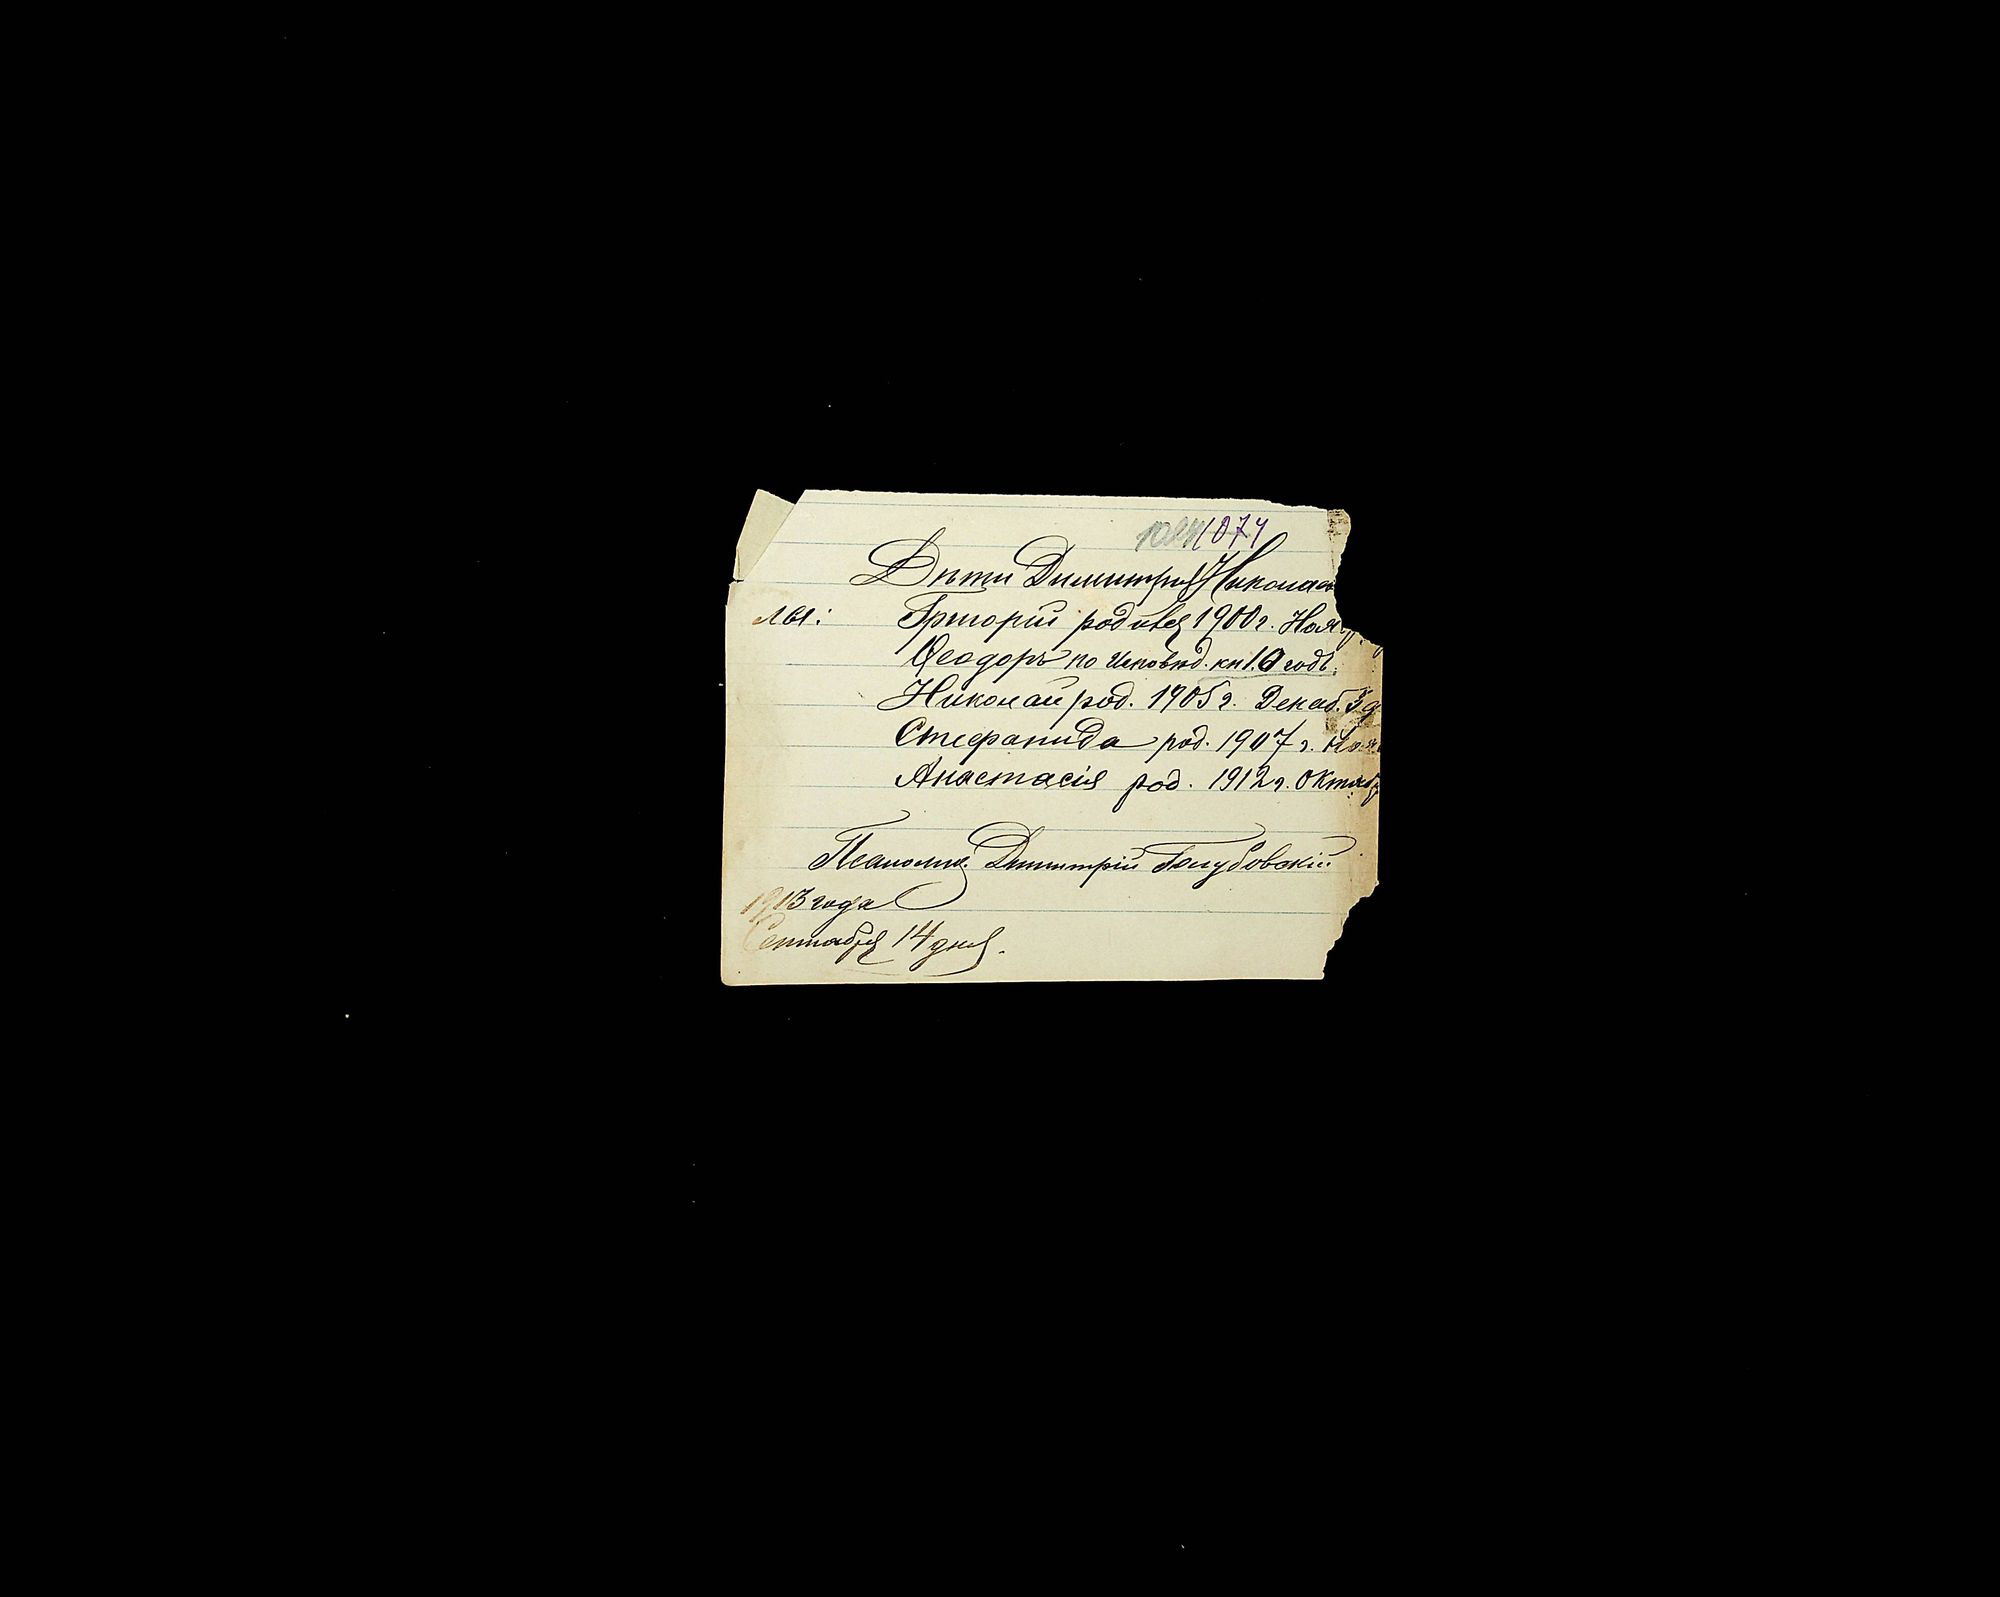 1074
Дѣти Димитрія Николае
лы: Григорій родився 1900 г. Нояб
Ѳеодоръ по Исповѣд. кн. 10 годъ.
Николай род. 1905 г. Декаб. 3 д
Стефанида род. 1907 г. Ноя
Анастасія род. 1912 г. Октяб
Псаломщ. Димитрій Голубовскій
1913 года
Сентября 14 дня.